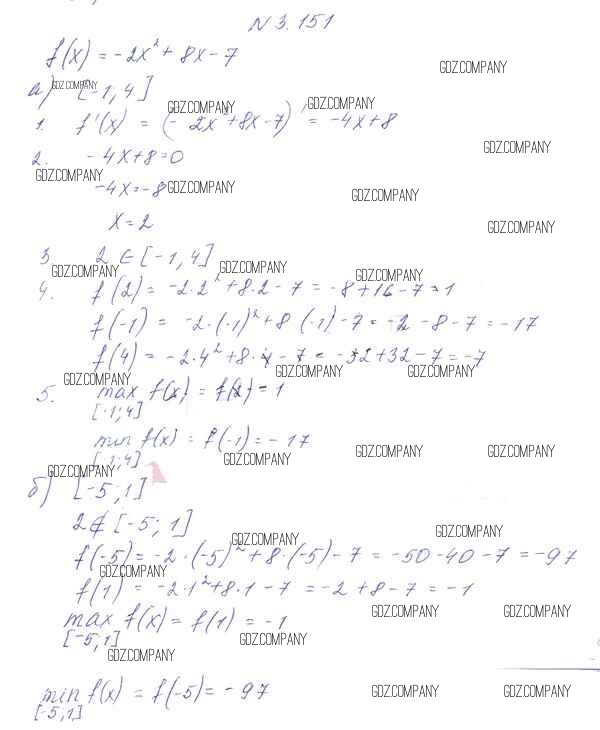 N 3.151
f(x) = -2x² + 8x - 7
GDZ.COMPANY
а) [-1; 4]
GDZ.COMPANY
GDZ.COMPANY GDZ.COMPANY
1. f'(x) = (-2x²+8x-7)' = -4x+8
2. -4x+8=0
GDZ.COMPANY
GDZ.COMPANY
-4x=-8
GDZ.COMPANY GDZ.COMPANY
x=2
GDZ.COMPANY
3. 2 ∈ [-1; 4]
GDZ.COMPANY GDZ.COMPANY GDZ.COMPANY
4. f(2) = -2·2²+8·2-7 = -8+16-7=1
f(-1) = -2·(-1)²+8·(-1)-7 = -2-8-7 = -17
f(4) = -2·4²+8·4-7 = -32+32-7=-7
GDZ.COMPANY GDZ.COMPANY GDZ.COMPANY
5. max f(x) = f(2) = 1
[-1;4]
min f(x) = f(-1) = -17
[-1;4]
GDZ.COMPANY GDZ.COMPANY GDZ.COMPANY
GDZ.COMPANY
б) [-5; 1]
2∉[-5; 1]
GDZ.COMPANY GDZ.COMPANY
f(-5) = -2·(-5)²+8·(-5)-7 = -50-40-7 = -97
GDZ.COMPANY
f(1) = -2·1²+8·1-7 = -2+8-7 = -1
GDZ.COMPANY GDZ.COMPANY
max f(x) = f(1) = -1
[-5;1]
GDZ.COMPANY
GDZ.COMPANY
min f(x) = f(-5) = -97
[-5;1]
GDZ.COMPANY GDZ.COMPANY